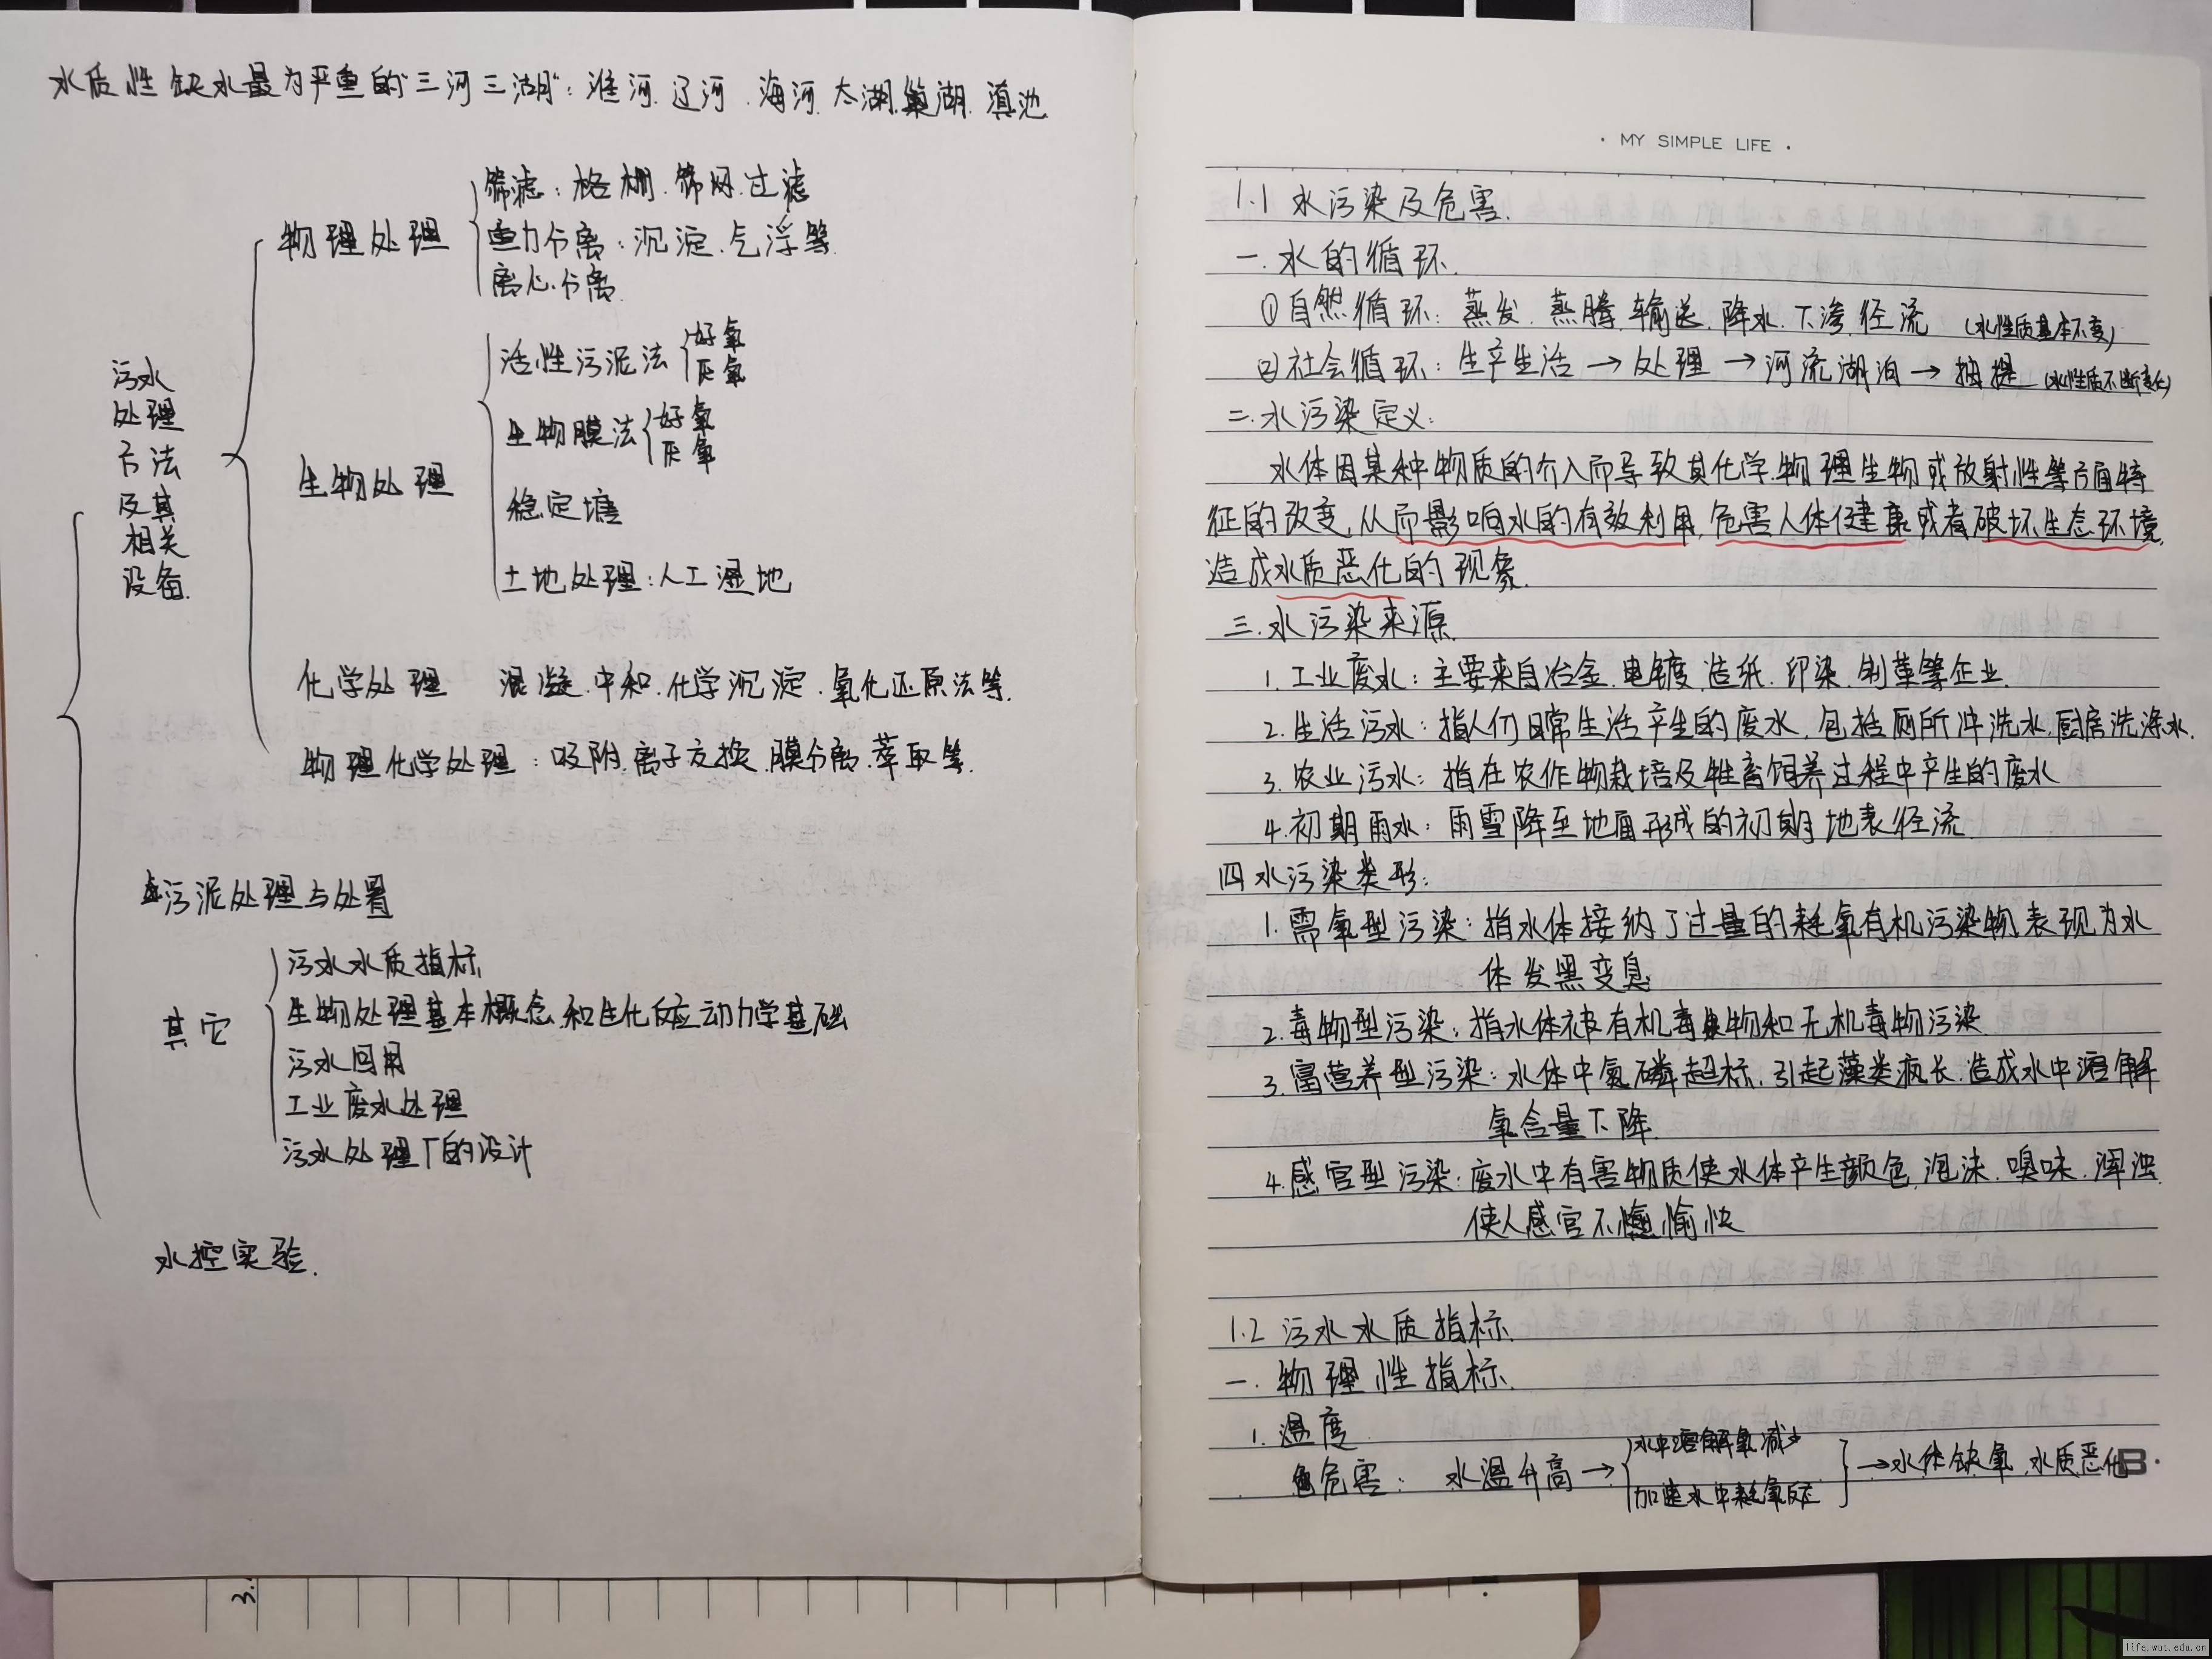 水质性缺水最为严重的"三河三湖": 淮河.辽河.海河.太湖.巢湖.滇池
污水
处理
方法
及其
相关
设备.
物理处理
筛滤: 格栅.筛网.过滤
重力分离: 沉淀.气浮等.
离心分离.
生物处理
活性污泥法
好氧
厌氧
生物膜法
好氧
厌氧
稳定塘
土地处理: 人工湿地
化学处理 混凝.中和.化学沉淀.氧化还原法等.
物理化学处理: 吸附.离子交换.膜分离.萃取等.
污泥处理与处置
其它
污水水质指标
生物处理基本概念和生化反应动力学基础
污水回用
工业废水处理
污水处理厂的设计
水控实验.
· MY SIMPLE LIFE ·
1.1 水污染及危害.
一.水的循环.
①自然循环: 蒸发.蒸腾.输送.降水.下渗.径流 (水性质基本不变)
②社会循环: 生产生活→处理→河流湖泊→抽提 (水性质不断变化)
二.水污染定义:
水体因某种物质的介入而导致其化学.物理生物或放射性等方面特
征的改变,从而影响水的有效利用,危害人体健康或者破坏生态环境,
造成水质恶化的现象.
三.水污染来源.
1.工业废水: 主要来自冶金.电镀.造纸.印染.制革等企业.
2.生活污水: 指人们日常生活产生的废水,包括厕所冲洗水.厨房洗涤水.
3.农业污水: 指在农作物栽培及牲畜饲养过程中产生的废水
4.初期雨水: 雨雪降至地面形成的初期地表径流.
四 水污染类形:
1.需氧型污染: 指水体接纳了过量的耗氧有机污染物.表现为水
体发黑变臭
2.毒物型污染: 指水体被有机毒物和无机毒物污染
3.富营养型污染: 水体中氮磷超标,引起藻类疯长,造成水中溶解
氧含量下降.
4.感官型污染: 废水中有害物质使水体产生颜色.泡沫.嗅味.浑浊.
使人感官不愉快
1.2 污水水质指标.
一.物理性指标.
1.温度.
危害: 水温升高→
水中溶解氧减少
加速水中耗氧反应
→水体缺氧,水质恶化
B·
3.
life.wut.edu.cn